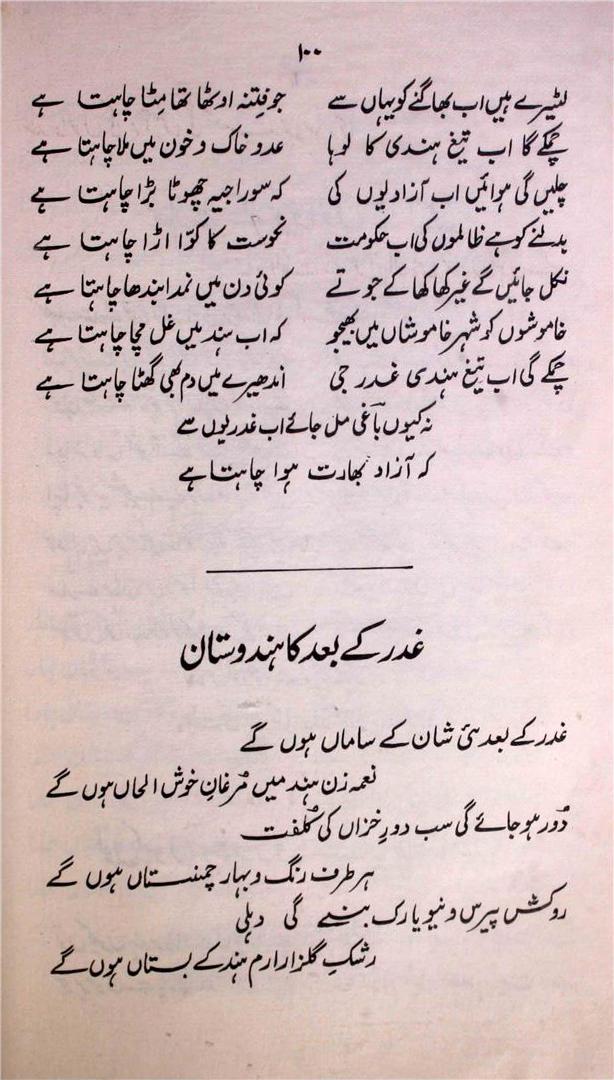 ۱۰۰
لٹیرے ہیں اب بھاگنے کو یہاں سے جو فتنہ اوٹھا تھا مٹا چاہتا ہے
چمکے گا اب تیغ ہندی کا لوہا عدو خاک و خون میں ملا چاہتا ہے
چلیں گی ہوائیں اب آزادیوں کی کہ سوراجیہ چھوٹا بڑا چاہتا ہے
بدلنے کو ہے ظالموں کی اب حکومت نحوست کا کوّا اڑا چاہتا ہے
نکل جائیں گے غیر کھا کھا کے جوتے کوئی دن میں نمدا بندھا چاہتا ہے
خاموشوں کو شہر خاموشاں میں بھیجو کہ اب ہند میں غل مچا چاہتا ہے
چمکے گی اب تیغ ہندی غدر جی اندھیرے میں دم بھی گھٹا چاہتا ہے
نہ کیوں باغی مل جائے اب غدریوں سے
کہ آزاد بھارت ہوا چاہتا ہے
غدر کے بعد کا ہندوستان
غدر کے بعد نئی شان کے ساماں ہوں گے
نغمہ زن ہند میں مُرغانِ خوش الحاں ہوں گے
دُور ہو جائے گی سب دورِ خزاں کی کُلفت
ہر طرف رنگ و بہار چمنستاں ہوں گے
روکش پیرس و نیویارک بنے گی دہلی
رشکِ گلزار ارم ہند کے بستاں ہوں گے